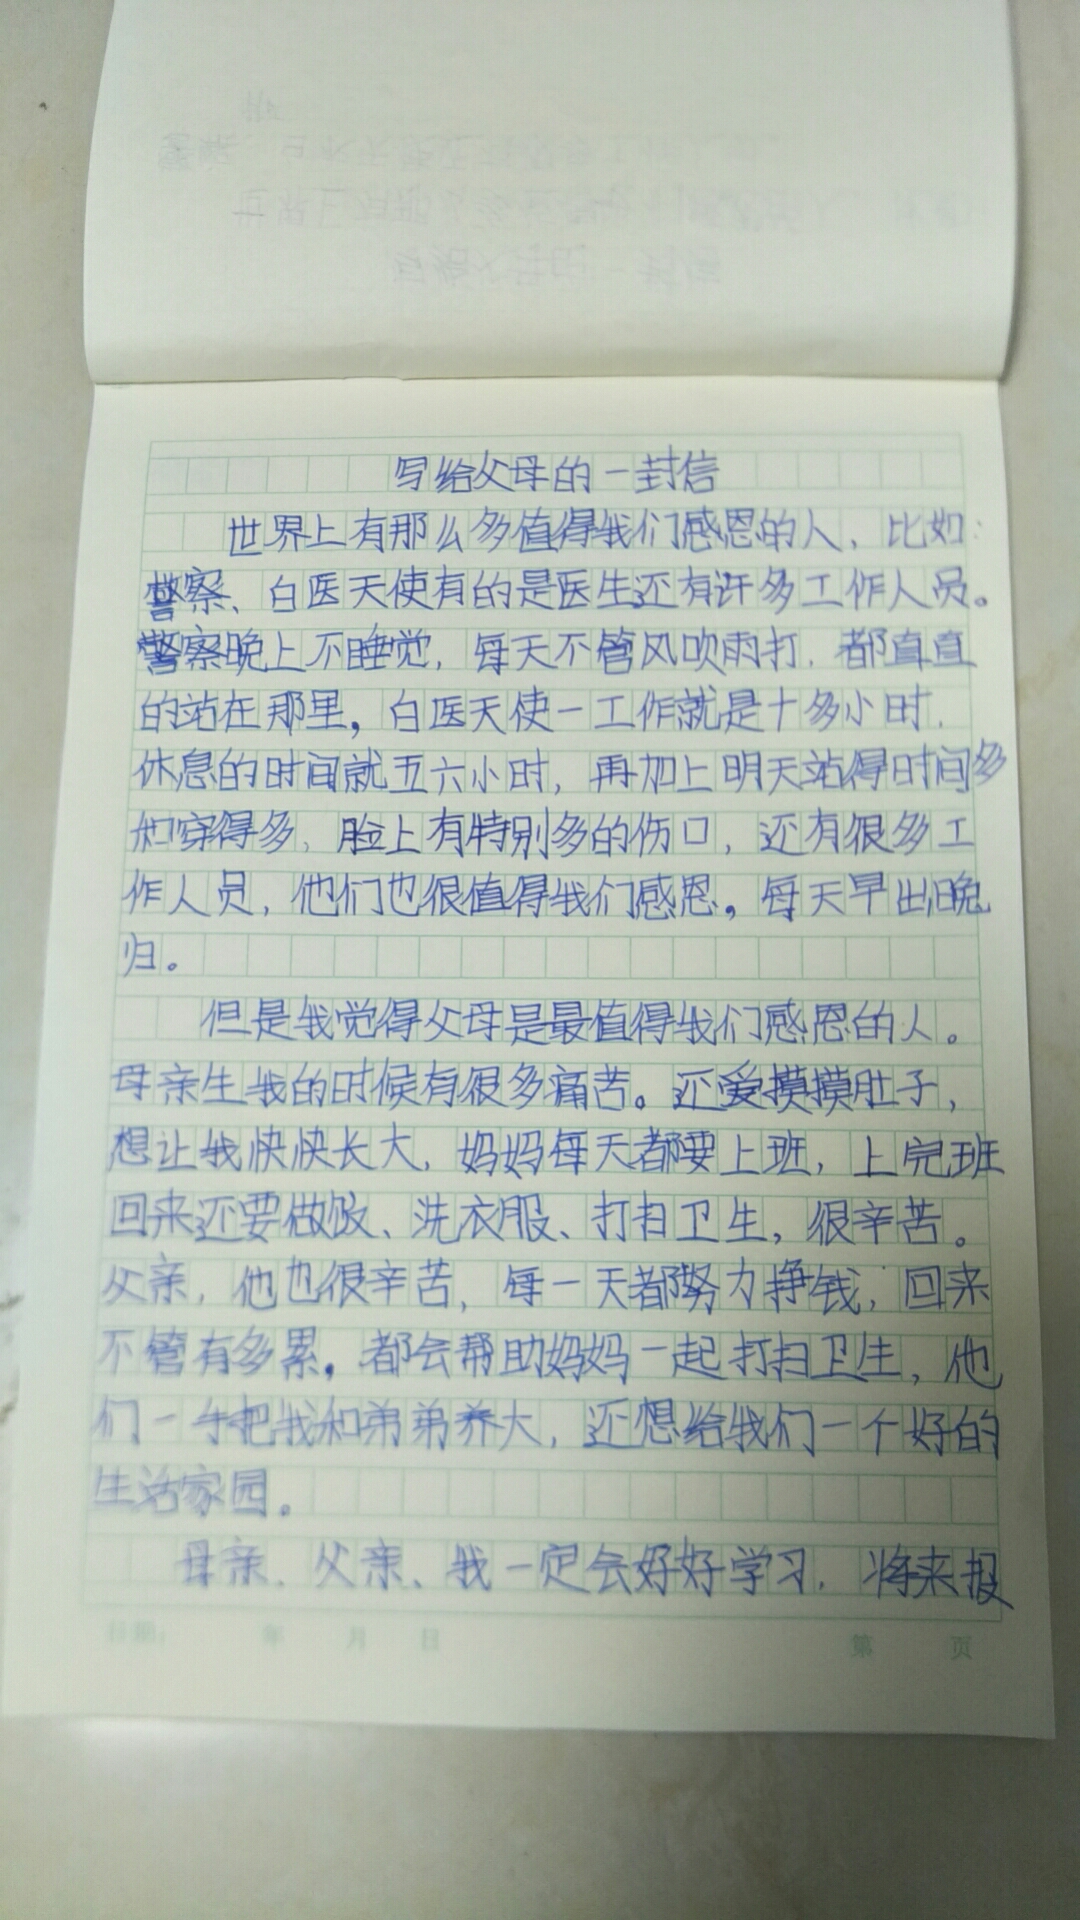 写给父母的一封信
世界上有那么多值得我们感恩的人，比如：
警察、白医天使有的是医生还有许多工作人员。
警察晚上不睡觉，每天不管风吹雨打，都直直
的站在那里，白医天使一工作就是十多小时，
休息的时间就五六小时，再加上明天站得时间多
和穿得多，脸上有特别多的伤口，还有很多工
作人员，他们也很值得我们感恩。每天早出晚
归。
但是我觉得父母是最值得我们感恩的人。
母亲生我的时候有很多痛苦。还爱摸摸肚子，
想让我快快长大，妈妈每天都要上班，上完班
回来还要做饭、洗衣服、打扫卫生，很辛苦。
父亲，他也很辛苦，每一天都努力挣钱，回来
不管有多累，都会帮助妈妈一起打扫卫生，他
们一手把我和弟弟养大，还想给我们一个好的
生活家园。
母亲、父亲、我一定会好好学习，将来报
日期： 年 月 日 第 页